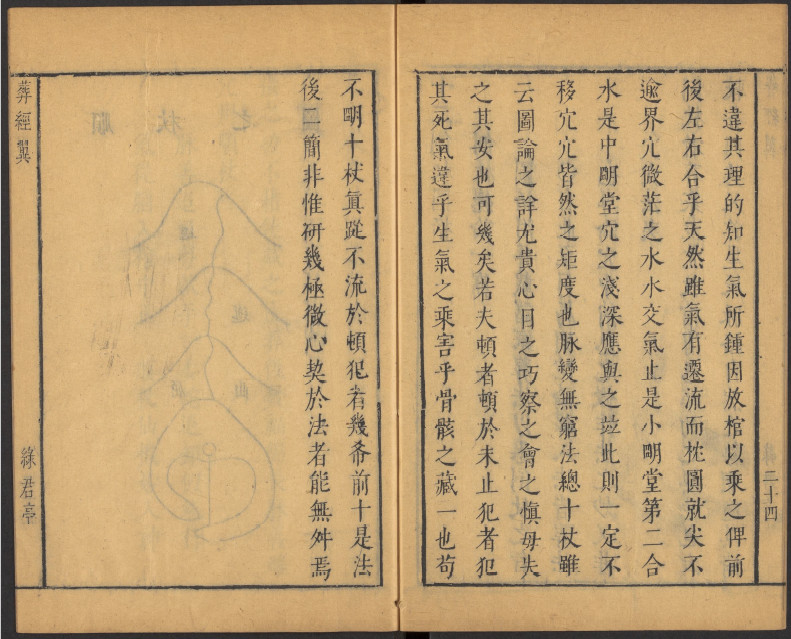 二十四
不違其理的知生氣所鍾因放棺以乘之俾前
後左右合乎天然雖氣有遷流而枕圓就尖不
逾界穴微茫之水水交氣止是小明堂第二合
水是中明堂穴之淺深應與之並此則一定不
移穴穴皆然之矩度也脉變無窮法總十杖雖
云圖論之詳尤貴心目之巧察之會之慎毋失
之其安也可幾矣若夫頓者頓於未止犯者犯
其死氣違乎生氣之乘害乎骨骸之藏一也苟
不明十杖眞蹤不流於頓犯者幾希前十是法
後二簡非惟研幾極微心契於法者能無舛焉
葬經翼
綠君亭